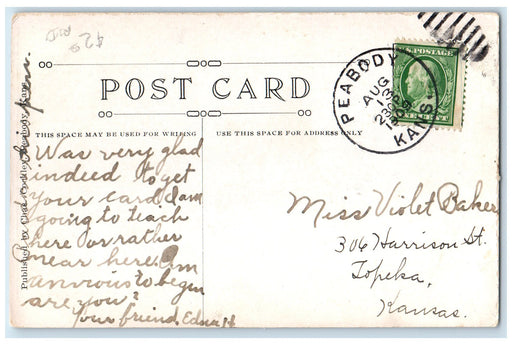 POST CARD
THIS SPACE MAY BE USED FOR WRITING
USE THIS SPACE FOR ADDRESS ONLY
Was very glad
indeed to get
your card. I am
going to teach
here or rather
near here. Am
anxious to begin
are you?
your friend, Edna H
Miss Violet Baker
306 Harrison St.
Topeka,
Kansas.
PEABODY
AUG
23
1909
KANS.
U.S. POSTAGE
Published by
Peabody, Kans.